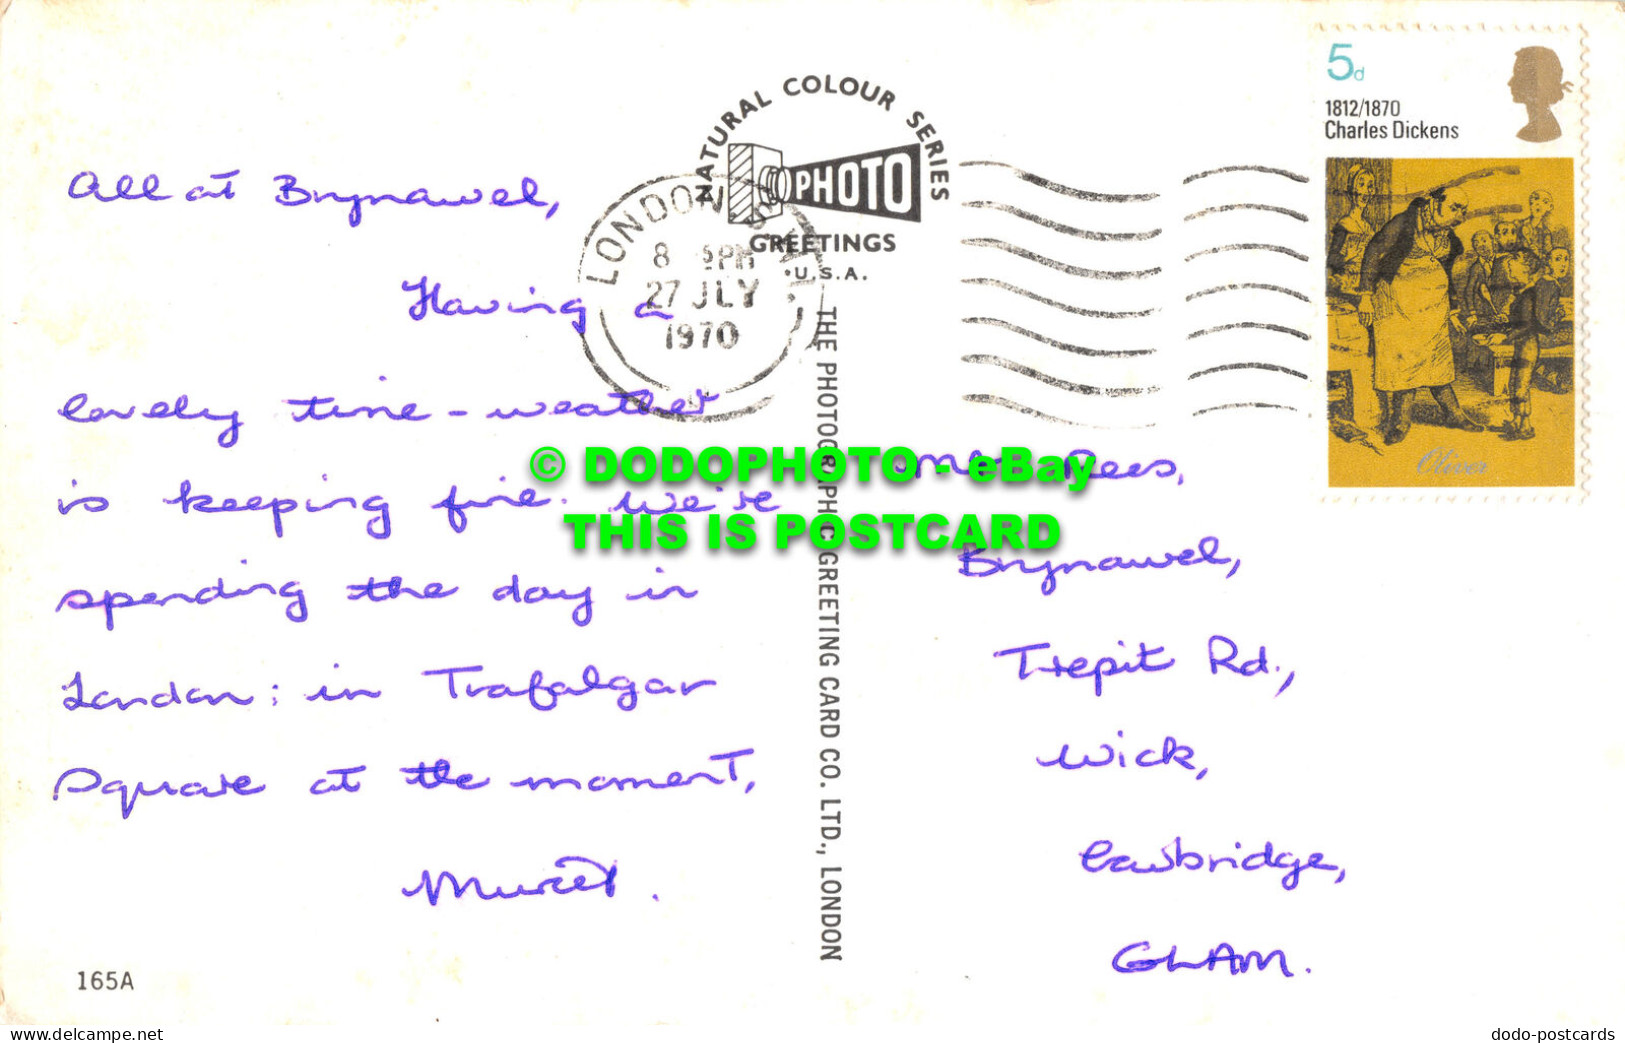 All at Brynawel,
Having a
lovely time - weather
is keeping fine. We're
spending the day in
London; in Trafalgar
Square at the moment,
165A
NATURAL COLOUR SERIES
PHOTO
GREETINGS
U.S.A.
LONDON
8 PM
27 JLY
1970
THE PHOTOGRAPHIC GREETING CARD CO. LTD., LONDON
5d
1812/1870
Charles Dickens
Oliver
© DODOPHOTO - eBay
THIS IS POSTCARD
Rees,
Brynawel,
Trepit Rd.,
Wick,
Cowbridge,
GLAM.
www.delcampe.net
dodo-postcards